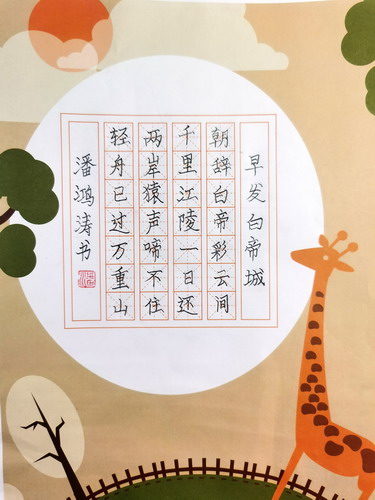 早发白帝城
朝辞白帝彩云间
千里江陵一日还
两岸猿声啼不住
轻舟已过万重山
潘鸿涛书